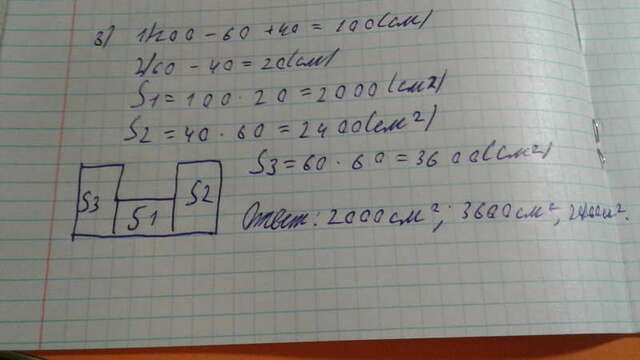 в) 1) 200 - 60 + 40 = 100(см)
2) 60 - 40 = 20(см)
S1 = 100 · 20 = 2000(см2)
S2 = 40 · 60 = 2400(см²)
S3 = 60 · 60 = 3600(см²)
S3 S1 S2
Ответ: 2000см²; 3600см², 2400см².